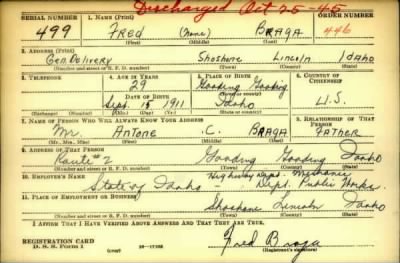 Discharged Oct 25-45
SERIAL NUMBER 1. NAME (Print) ORDER NUMBER
499 FRED (None) BRAGA 446
(First) (Middle) (Last)
2. ADDRESS (Print)
Gen. Delivery Shoshone Lincoln Idaho
(Number and street or R. F. D. number) (Town) (County) (State)
3. TELEPHONE 4. AGE IN YEARS 5. PLACE OF BIRTH 6. COUNTRY OF CITIZENSHIP
29 Gooding Gooding
DATE OF BIRTH (Town or county)
Sept. 15 1911 Idaho U.S.
(Exchange) (Number) (Mo.) (Day) (Yr.) (State or country)
7. NAME OF PERSON WHO WILL ALWAYS KNOW YOUR ADDRESS 8. RELATIONSHIP OF THAT PERSON
Mr. ANTONE C. BRAGA FATHER
(Mr., Mrs., Miss) (First) (Middle) (Last)
9. ADDRESS OF THAT PERSON
Route #2 Gooding Gooding Idaho
(Number and street or R. F. D. number) (Town) (County) (State)
10. EMPLOYER'S NAME Highway Dept. Mechanic
State of Idaho - Dept. Public Works
11. PLACE OF EMPLOYMENT OR BUSINESS
Shoshone Lincoln Idaho
(Number and street or R. F. D. number) (Town) (County) (State)
I AFFIRM THAT I HAVE VERIFIED ABOVE ANSWERS AND THAT THEY ARE TRUE.
REGISTRATION CARD
D. S. S. Form 1 Fred Braga
(Registrant's signature)